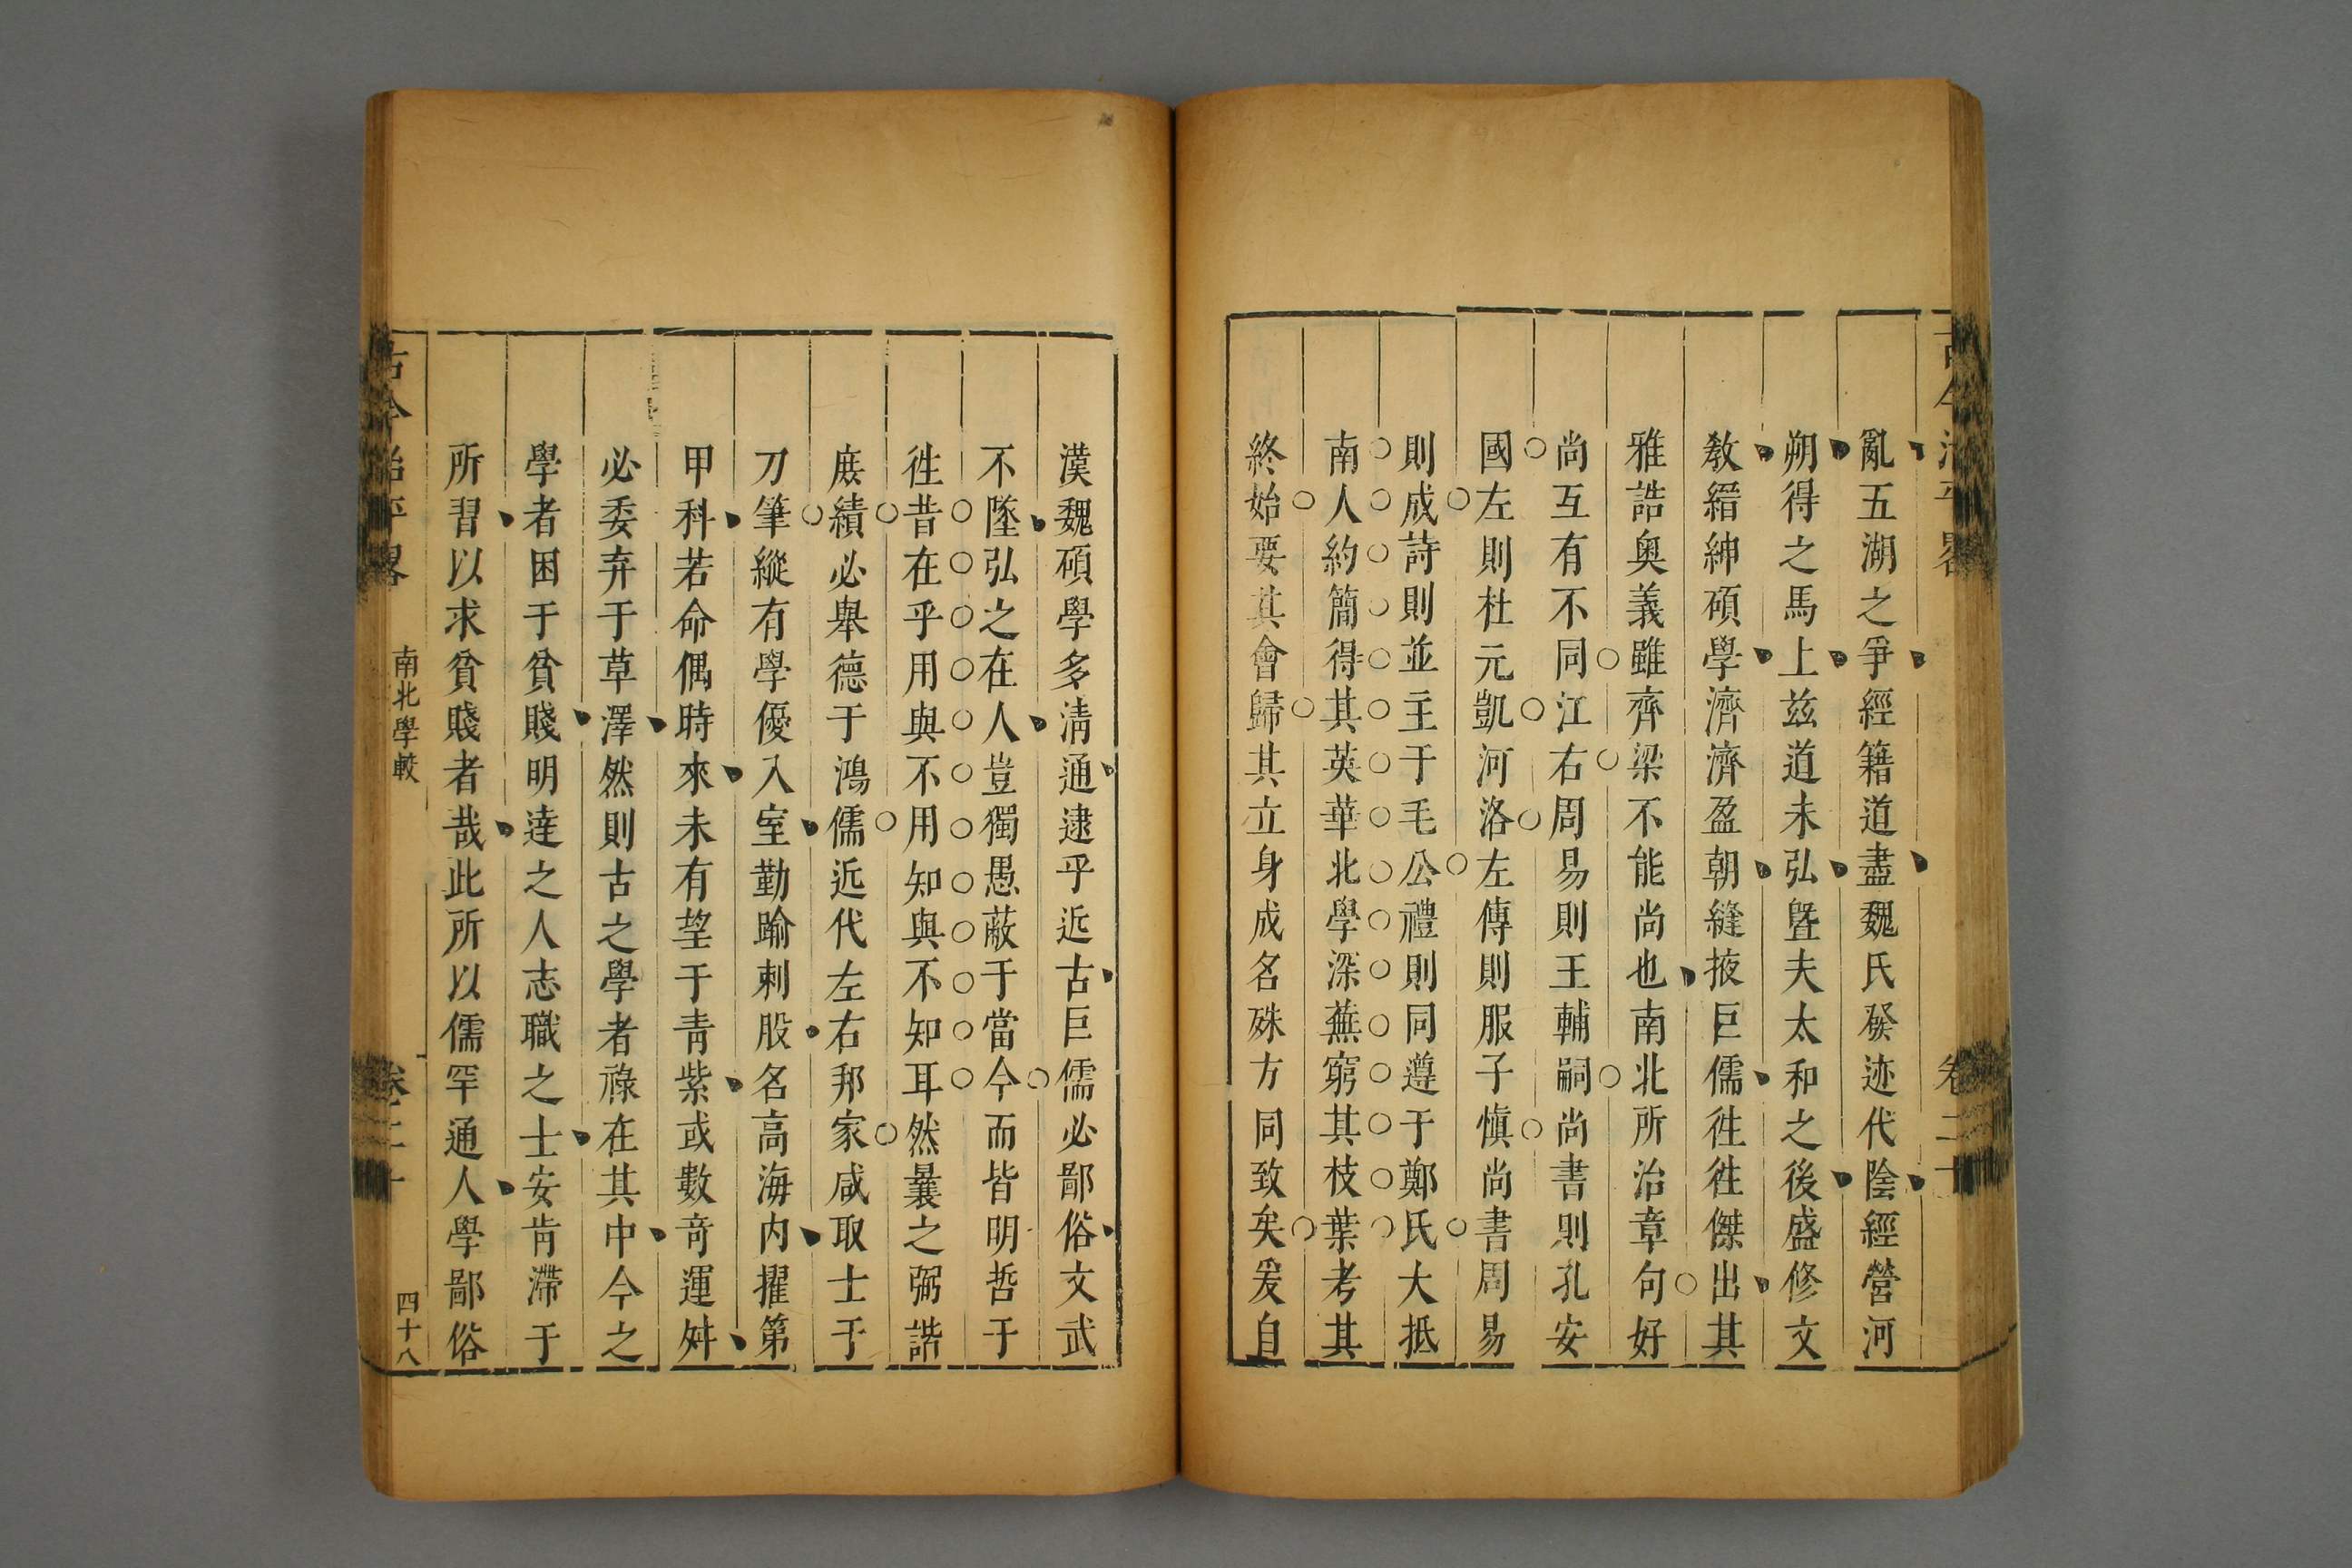 亂五湖之爭經籍道盡魏氏發迹代陰經營河
朔得之馬上茲道未弘曁夫太和之後盛修文
敎縉紳碩學濟濟盈朝縫掖巨儒徃徃傑出其
雅誥奧義雖齊梁不能尚也南北所治章句好
尚互有不同江右周易則王輔嗣尚書則孔安
國左則杜元凱河洛左傳則服子愼尚書周易
則成詩則並主于毛公禮則同遵于鄭氏大抵
南人約簡得其英華北學深蕪窮其枝葉考其
終始要其會歸其立身成名殊方同致矣爰自
漢魏碩學多淸通逮乎近古巨儒必鄙俗文武
不墜弘之在人豈獨愚蔽于當今而皆明哲于
徃昔在乎用與不用知與不知耳然曩之弼諧
庶績必舉德于鴻儒近代左右邦家咸取士于
刀筆縱有學優入室勤踰刺股名高海内擢第
甲科若命偶時來未有望于靑紫或數竒運舛
必委弃于草澤然則古之學者祿在其中今之
學者困于貧賤明達之人志職之士安肯滯于
所習以求貧賤者哉此所以儒罕通人學鄙俗
古今治平畧
南北學較
卷二十
四十八